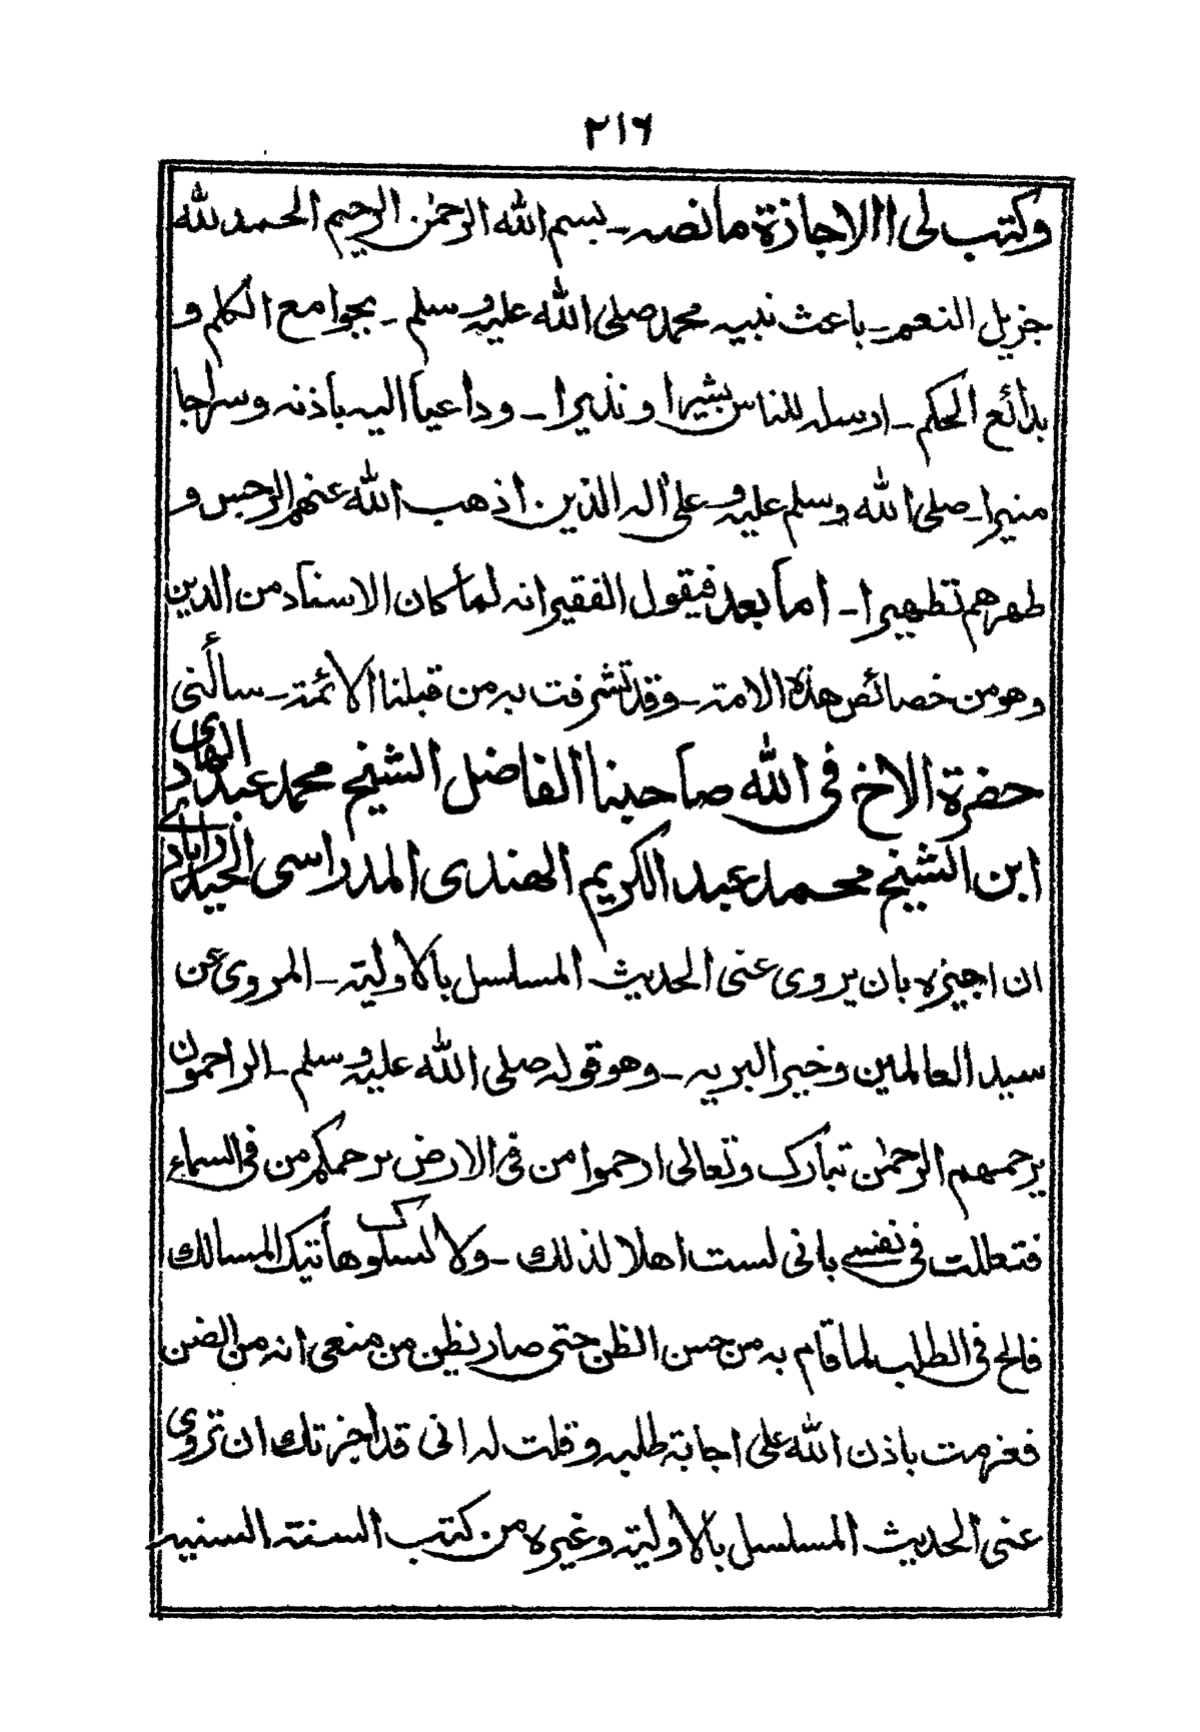 ٢١٦
وكتب لى االاجازة مانصه ـ بسم الله الرحمٰن الرحيم الحمد لله
جزيل النعم ـ باعث نبيه محمد صلى الله عليه وسلم ـ بجوامع الكلم و
بدائع الحكم ـ ارسله للناس بشيرا ونذيرا ـ وداعيا اليه باذنه وسراجا
منيرا ـ صلى الله وسلم عليه وعلى اله الذين اذهب الله عنهم الرجس و
طهرهم تطهيرا ـ اما بعد فيقول الفقير انه لما كان الاسناد من الدين
وهو من خصائص هذه الامة ـ وقد تشرفت به من قبلنا الائمة ـ سألنى
حضرة الاخ فى الله صاحبنا الفاضل الشيخ محمد عبد الهادى
ابن الشيخ محمد عبد الكريم الهندى المدراسى الحيدراٰبادى
ان اجيزه بان يروى عنى الحديث المسلسل بالاولية ـ المروى عن
سيد العالمين وخير البريه ـ وهو قوله صلى الله عليه وسلم ـ الراحمون
يرحمهم الرحمٰن تبارك وتعالى ارحموا من فى الارض يرحمكم من فى السماء
فتعللت فى نفسى بانى لست اهلا لذلك ـ ولا لسلوك هاتيك المسالك
فالح فى الطلب لما قام به من حسن الظن حتى صار يظن من منعى انه من الضن
فعزمت باذن الله على اجابة طلبه وقلت له انى قد اجزتك ان تروى
عنى الحديث المسلسل بالاولية وغيره من كتب السنة السنيه